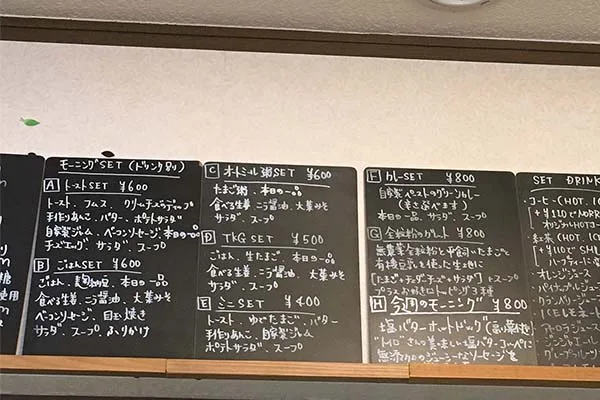 モーニングSET (ドリンク別)
A トーストSET ¥600
トースト、フムス、クリームチーズディップ
手作りあんこ、バター、ポテトサラダ
自家製ジャム、ベーコンソーセージ、本日の一品
チーズエッグ、サラダ、スープ
B ごはんSET ¥600
ごはん、麹納豆、本日の一品
食べる生姜、ニラ醤油、大葉みそ
ベーコンソーセージ、目玉焼き
サラダ、スープ、ふりかけ
C オートミール粥SET ¥600
たまご粥、本日の一品
食べる生姜、ニラ醤油、大葉みそ
サラダ、スープ
D TKG SET ¥500
ごはん、生たまご、本日の一品
食べる生姜、ニラ醤油、大葉みそ
サラダ、スープ
E ミニSET ¥400
トースト、ゆでたまご、バター
手作りあんこ、自家製ジャム
ポテトサラダ、スープ
F カレーSET ¥800
自家製ペーストのグリーンカレー
本日の一品、サラダ、スープ
G 全粒粉のガレット ¥800
無農薬全粒粉と平飼いたまごと
有機豆乳を使った生地に
[たまご+チェダーチーズ+サラダ]とスープ
プラスお好きなトッピング3種
H 今週のモーニング ¥800
塩バターホットドッグ
さんの美味しい塩バターコッペに
無添加のジューシーなソーセージを
SET DRINK
・コーヒー(HOT, IC
+¥110で
オリジナルHOTコ
・紅茶(HOT, IC
+¥110で
ハーブティーに変
・オレンジジュース
・パイナップルジュース
・クランベリー
・アセロラジュース
・ジンジャエール
・グレープフルーツ